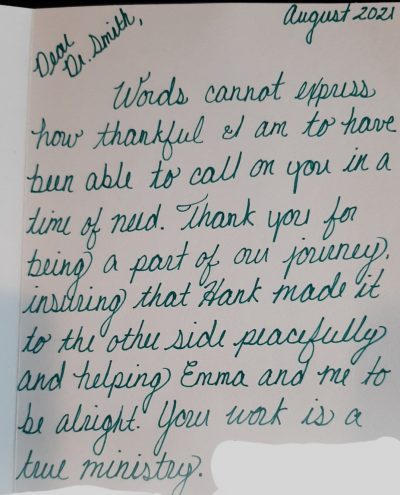 August 2021
Dear
Dr. Smith,
Words cannot express
how thankful I am to have
been able to call on you in a
time of need. Thank you for
being a part of our journey.
insuring that Hank made it
to the other side peacefully
and helping Emma and me to
be alright. Your work is a
true ministry.